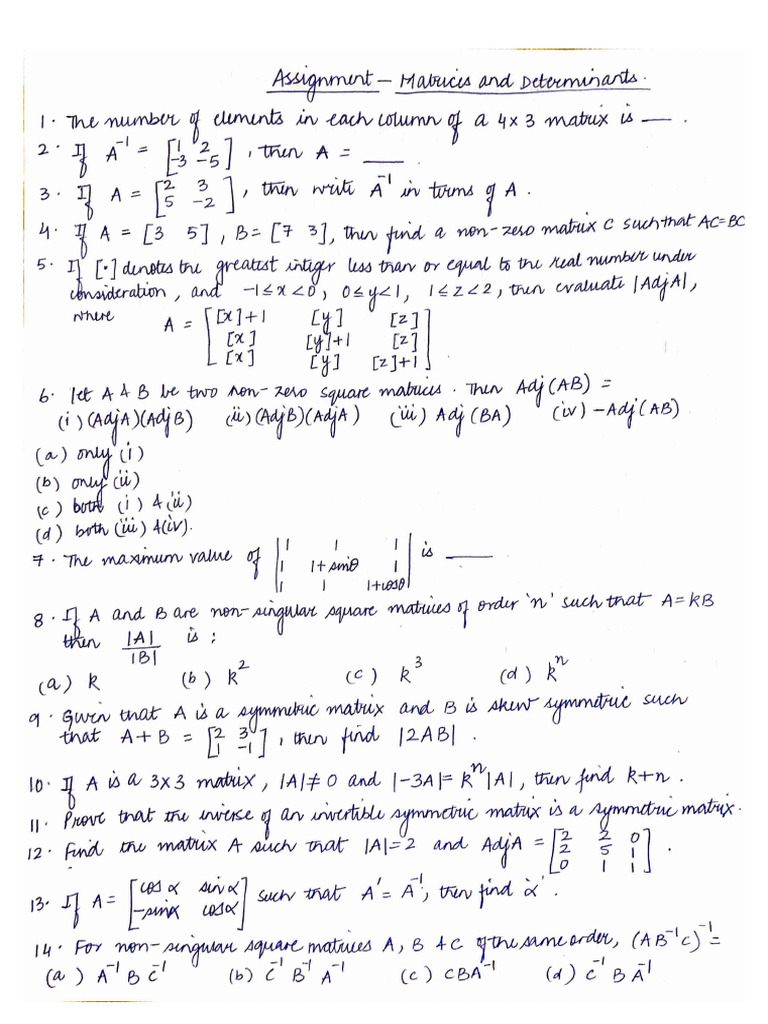 Assignment – Matrices and Determinants.
1. The number of elements in each column of a 4×3 matrix is ___.
2. If A⁻¹ = [1 2; -3 -5], then A = ___
3. If A = [2 3; 5 -2], then write A⁻¹ in terms of A.
4. If A = [3 5], B = [7 3], then find a non-zero matrix C such that AC=BC
5. If [•] denotes the greatest integer less than or equal to the real number under
consideration, and -1≤x<0, 0≤y<1, 1≤z<2, then evaluate |AdjA|,
where A = [[x]+1 [y] [z]
[x] [y]+1 [z]
[x] [y] [z]+1]
6. let A & B be two non-zero square matrices. Then Adj(AB) =
(i) (AdjA)(AdjB) (ii) (AdjB)(AdjA) (iii) Adj(BA) (iv) -Adj(AB)
(a) only (i)
(b) only (ii)
(c) both (i) & (ii)
(d) both (iii) & (iv).
7. The maximum value of |1 1 1; 1 1+sinθ 1; 1 1 1+cosθ| is ___
8. If A and B are non-singular square matrices of order 'n' such that A=kB
then |A|/|B| is :
(a) k (b) k² (c) k³ (d) kⁿ
9. Given that A is a symmetric matrix and B is skew symmetric such
that A+B = [2 3; 1 -1], then find |2AB|.
10. If A is a 3×3 matrix, |A|≠0 and |-3A|=kⁿ|A|, then find k+n.
11. Prove that the inverse of an invertible symmetric matrix is a symmetric matrix.
12. Find the matrix A such that |A|=2 and AdjA = [2 2 0; 2 5 1; 0 1 1].
13. If A = [cosα sinα; -sinα cosα] such that A' = A⁻¹, then find 'α'.
14. For non-singular square matrices A, B & C of the same order, (AB⁻¹C)⁻¹=
(a) A⁻¹BC⁻¹ (b) C⁻¹B⁻¹A⁻¹ (c) CBA⁻¹ (d) C⁻¹BA⁻¹